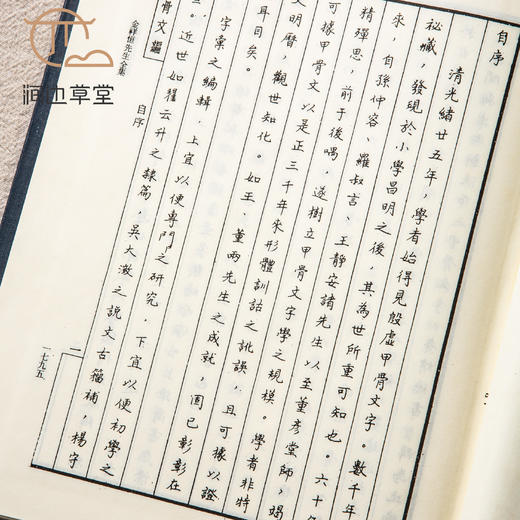 自序
清光緒廿五年，學者始得見殷虛甲骨文字。數千年
祕藏，發硯於小學昌明之後，其為世所重可知也。六十
來，自孫仲容、羅叔言、王靜安諸先生以至董彥堂師，竭
精殫思，前于後喁，遂樹立甲骨文字學之規模。學者非特
可據甲骨文以是正三千年來形體訓詁之訛誤，且可據以證
文明曆，觀世知化。如王、董兩先生之成就，固已彰彰在
耳目矣。
字彙之編輯，上宜以便專門之研究，下宜以便初學之
。近世如翟云升之隸篇，吳大澂之說文古籀補，楊守
骨文編 自序 一
金祥恒先生全集
一七九五
也草堂